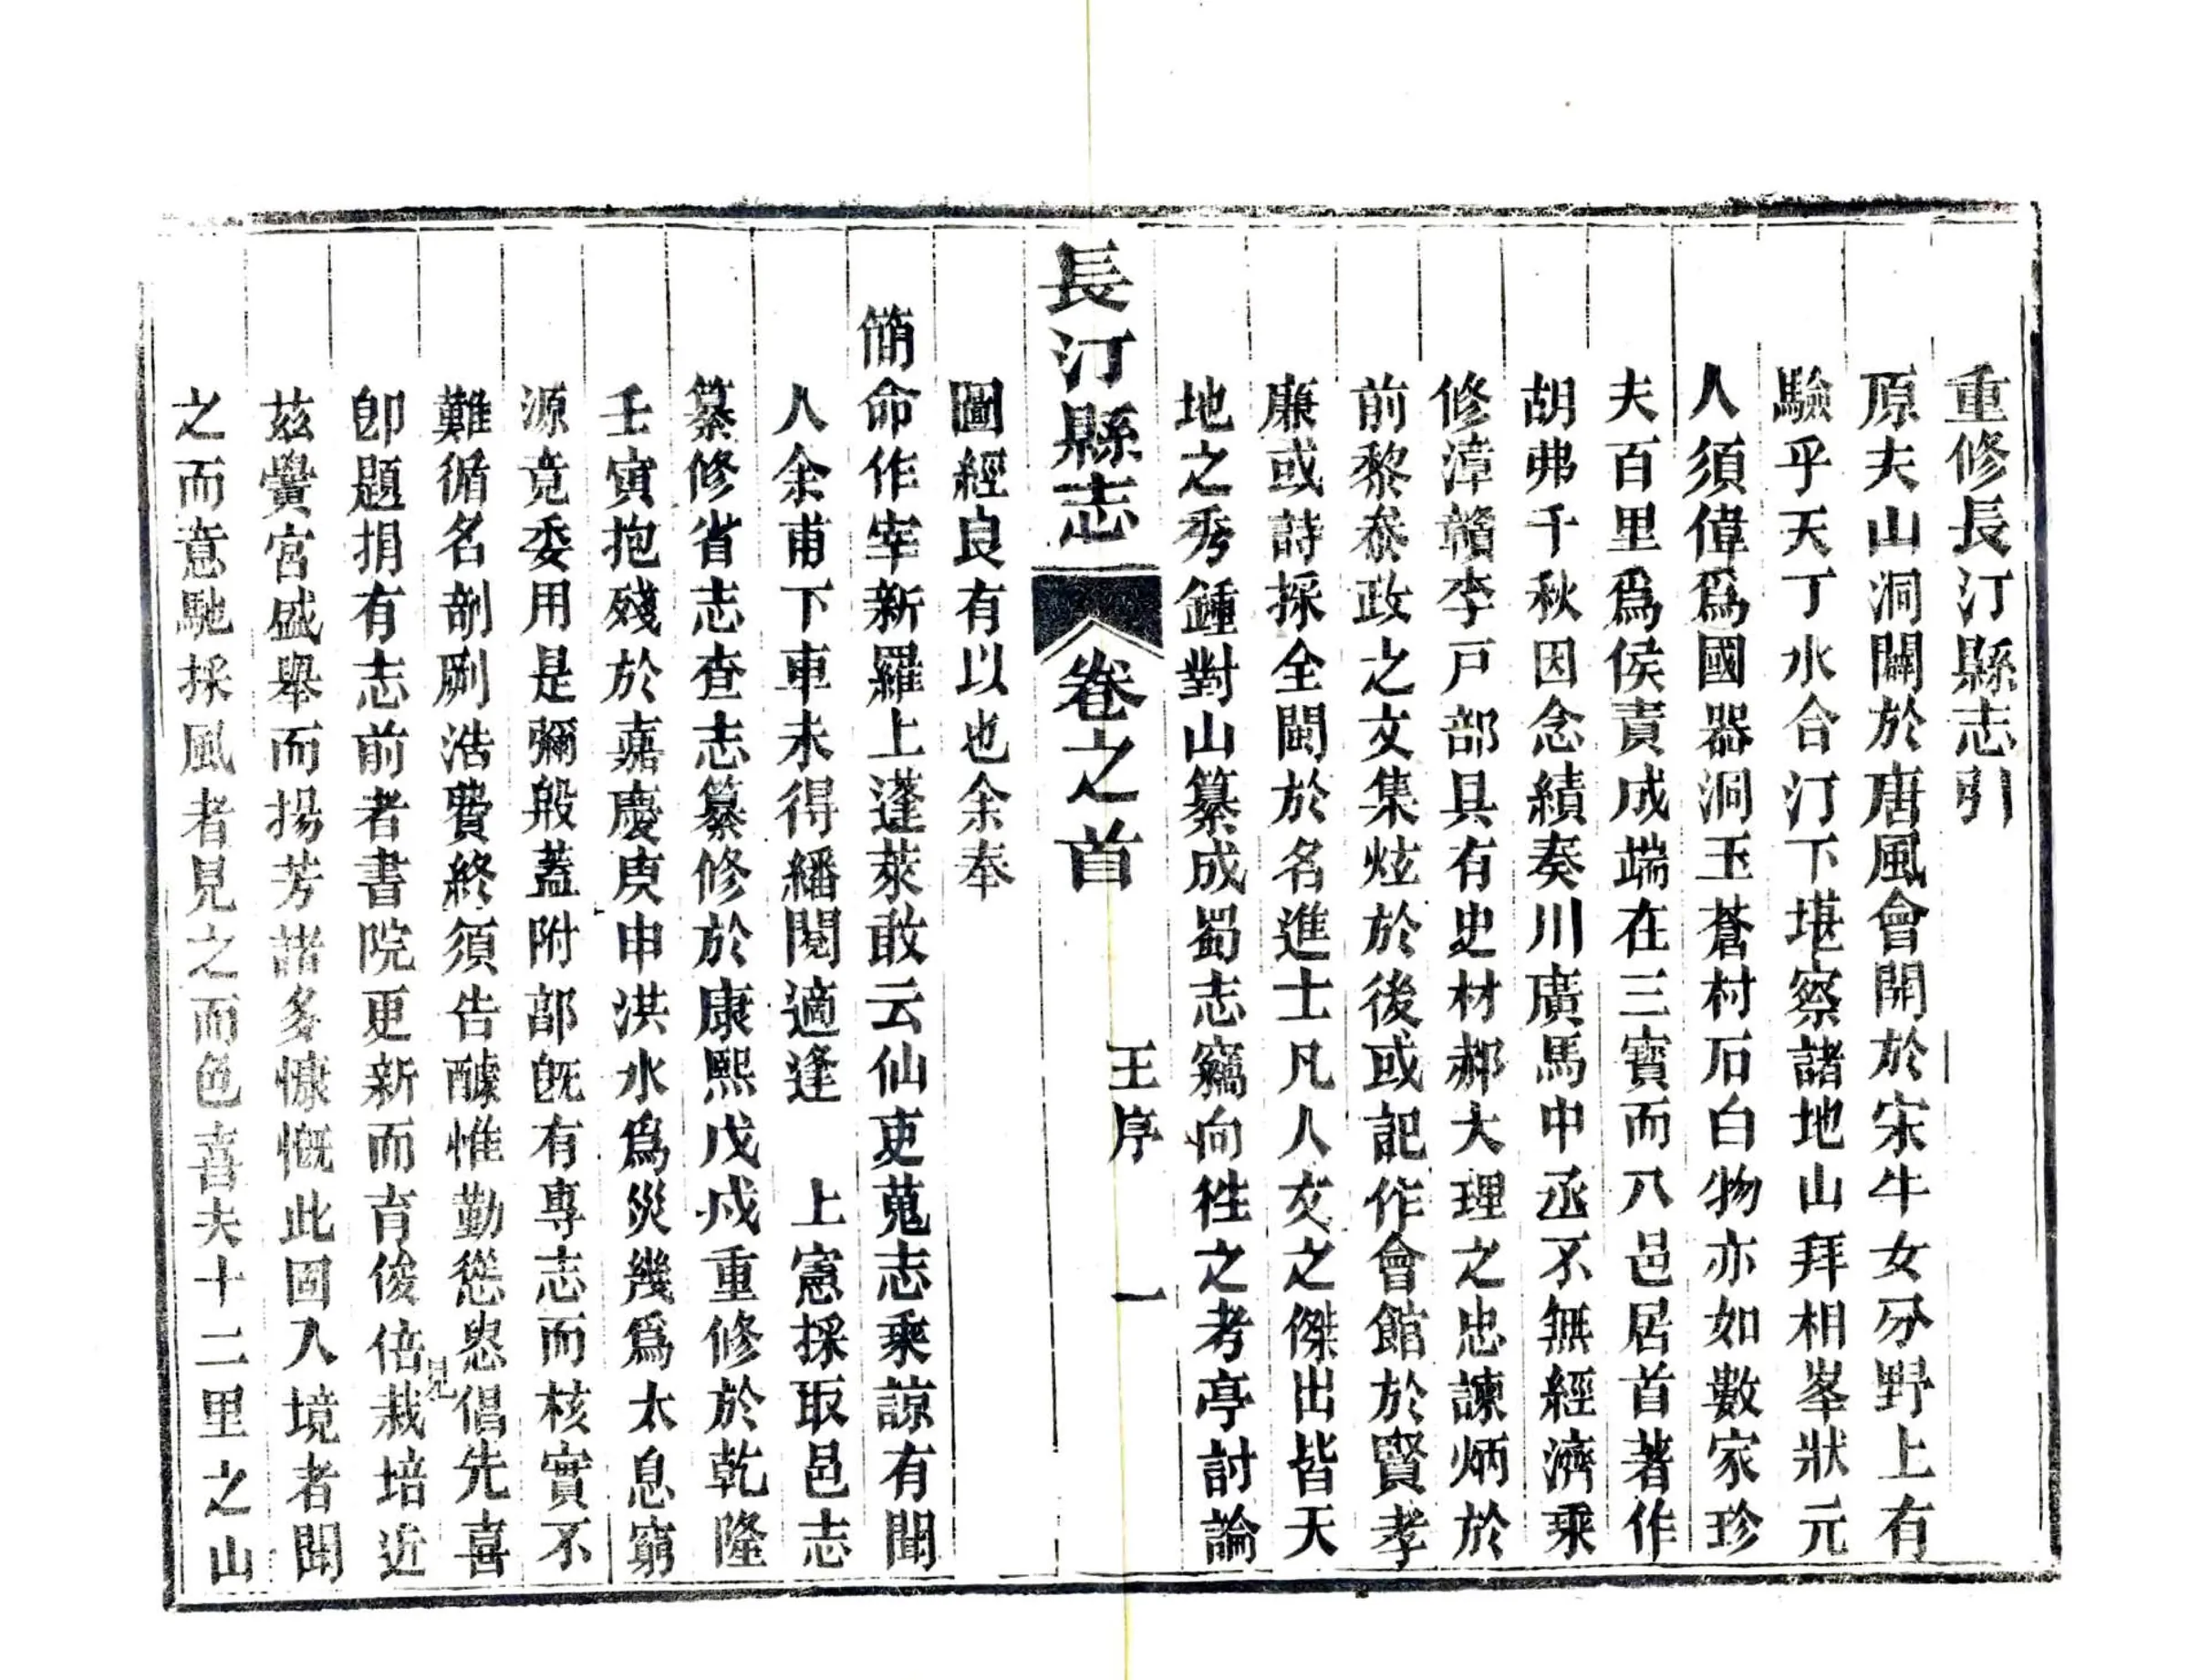 重修長汀縣志引
原夫山洞闢於唐風會開於宋牛女分野上有
驗乎天丁水合汀下堪察諸地山拜相峯狀元
人須偉爲國器洞玉蒼村石白物亦如數家珍
夫百里爲侯責成端在三寳而八邑居首著作
胡弗千秋因念績奏川廣馬中丞不無經濟乘
修漳贛李戸部具有史材郝大理之忠諫炳於
前黎泰政之文集炫於後或記作會館於賢孝
廉或詩採全閩於名進士凡人文之傑出皆天
地之秀鍾對山纂成蜀志竊向徃之考亭討論
長汀縣志 卷之首 王序 一
圖經良有以也余奉
簡命作宰新羅上蓬萊敢云仙吏蒐志乘諒有聞
人余甫下車未得繙閱適逢 上憲採取邑志
纂修省志查志纂修於康熙戊戍重修於乾隆
壬寅抱殘於嘉慶庚申洪水爲災幾爲太息窮
源竟委用是彌殷蓋附部旣有專志而核實不
難循名剞劂浩費終須告醵惟勤慫恿倡先喜
見
卽題捐有志前者書院更新而育俊倍栽培近
茲黌宮盛舉而揚芳諸多慷慨此固入境者聞
之而意馳採風者見之而色喜夫十二里之山